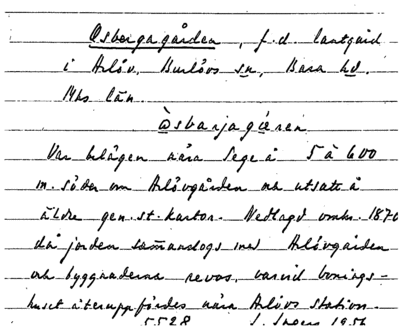 Åsbergagården, f.d. lantgård
i Arlöv, Burlövs sn, Bara hd.
Mhs län.
Åsbarjagåren
Var belägen nära Sege å 5 à 600
m. söder om Arlövgården och utsatt å
äldre gen. st. kartor. Nedlagd omkr. 1870
då jorden sammanslogs med Arlövgården
och byggnaderna revos, varvid bonings-
huset återuppfördes nära Arlövs station.
5528 I. Ingers 1956